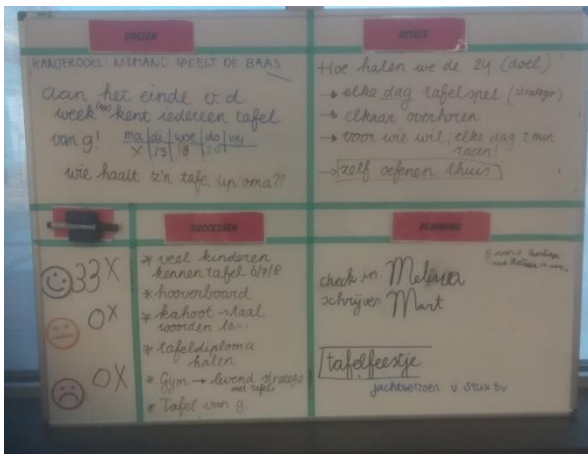 DOELEN
KANJERDOEL: NIEMAND SPEELT DE BAAS
aan het einde v.d
week kent iedereen tafel
van 9!
ma di woe do vrij
X 13 18 20
wie haalt z'n tafel
ACTIES
Hoe halen we de 24 (doel)
→ elke dag tafelspel (stratego)
→ elkaar overhoren
→ voor wie wil, elke dag 1 min
racen!
→ zelf oefenen thuis
33X
0X
0X
SUCCESSEN
* veel kinderen
kennen tafel 6/7/8
* hooverboard
* kahoot → taal
woorden
* tafeldiploma
halen
* Gym → levend stratego
met tafels
* Tafel van 9.
PLANNING
check in Melissa
schrijver Mart
tafelfeestje